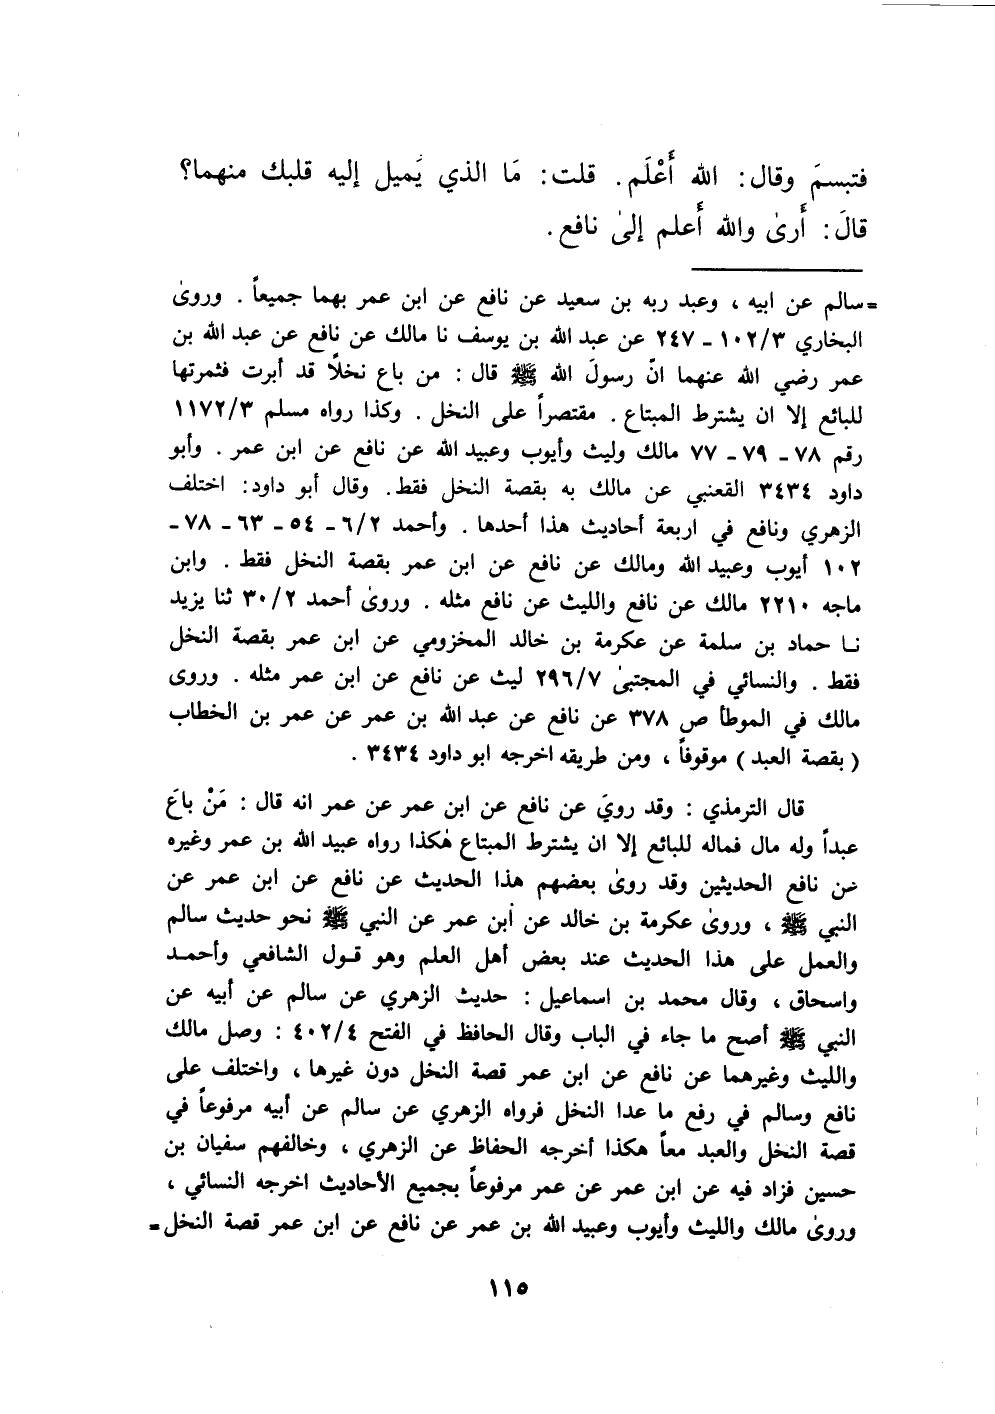 فتبسمَ وقال: الله أَعْلَم. قلت: مَا الذي يَميل إليه قلبك منهما؟
قالَ: أَرىٰ والله أَعلم إلىٰ نافع.
=سالم عن ابيه ، وعبد ربه بن سعيد عن نافع عن ابن عمر بهما جميعاً . وروىٰ
البخاري ١٠٢/٣ ـ ٢٤٧ عن عبد الله بن يوسف نا مالك عن نافع عن عبد الله بن
عمر رضي الله عنهما انّ رسولَ الله ﷺ قال : من باع نخلاً قد أبرت فثمرتها
للبائع إلا ان يشترط المبتاع . مقتصراً على النخل . وكذا رواه مسلم ١١٧٢/٣
رقم ٧٨ ـ ٧٩ ـ ٧٧ مالك وليث وأيوب وعبيد الله عن نافع عن ابن عمر . وأبو
داود ٣٤٣٤ القعنبي عن مالك به بقصة النخل فقط. وقال أبو داود: اختلف
الزهري ونافع في اربعة أحاديث هذا أحدها . وأحمد ٦/٢ ـ ٥٤ ـ ٦٣ ـ ٧٨ ـ
١٠٢ أيوب وعبيد الله ومالك عن نافع عن ابن عمر بقصة النخل فقط . وابن
ماجه ٢٢١٠ مالك عن نافع والليث عن نافع مثله . وروىٰ أحمد ٣٠/٢ ثنا يزيد
نا حماد بن سلمة عن عكرمة بن خالد المخزومي عن ابن عمر بقصة النخل
فقط . والنسائي في المجتبىٰ ٢٩٦/٧ ليث عن نافع عن ابن عمر مثله . وروى
مالك في الموطأ ص ٣٧٨ عن نافع عن عبد الله بن عمر عن عمر بن الخطاب
( بقصة العبد ) موقوفاً ، ومن طريقه اخرجه ابو داود ٣٤٣٤ .
قال الترمذي : وقد رويَ عن نافع عن ابن عمر عن عمر انه قال : مَنْ باعَ
عبداً وله مال فماله للبائع إلا ان يشترط المبتاع هٰكذا رواه عبيد الله بن عمر وغيره
عن نافع الحديثين وقد روىٰ بعضهم هذا الحديث عن نافع عن ابن عمر عن
النبي ﷺ ، وروىٰ عكرمة بن خالد عن ابن عمر عن النبي ﷺ نحو حديث سالم
والعمل على هذا الحديث عند بعض أهل العلم وهو قول الشافعي وأحمد
واسحاق ، وقال محمد بن اسماعيل : حديث الزهري عن سالم عن أبيه عن
النبي ﷺ أصح ما جاء في الباب وقال الحافظ في الفتح ٤٠٢/٤ : وصل مالك
والليث وغيرهما عن نافع عن ابن عمر قصة النخل دون غيرها ، واختلف على
نافع وسالم في رفع ما عدا النخل فرواه الزهري عن سالم عن أبيه مرفوعاً في
قصة النخل والعبد معاً هكذا أخرجه الحفاظ عن الزهري ، وخالفهم سفيان بن
حسين فزاد فيه عن ابن عمر عن عمر مرفوعاً بجميع الأحاديث اخرجه النسائي ،
وروىٰ مالك والليث وأيوب وعبيد الله بن عمر عن نافع عن ابن عمر قصة النخل=
١١٥